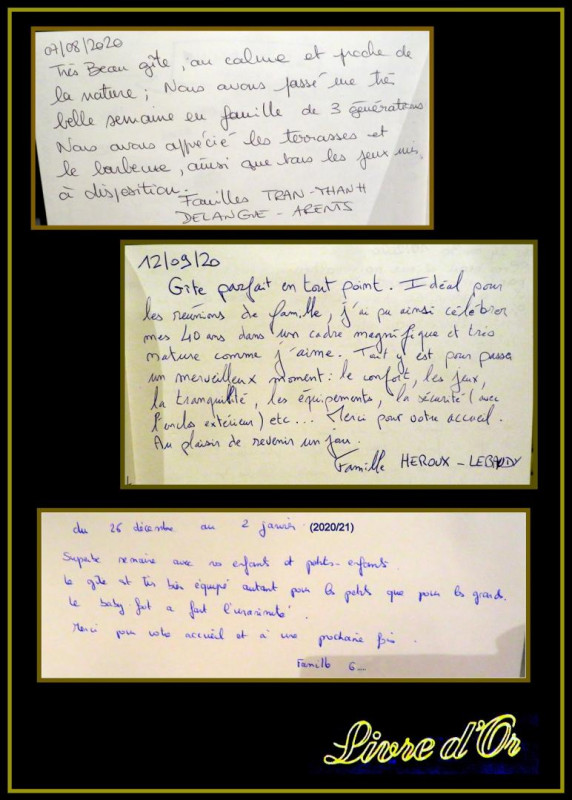 07/08/2020
Très Beau gîte, au calme et proche de
la nature ; Nous avons passé une très
belle semaine en famille de 3 générations
Nous avons apprécié les terrasses et
le barbecue, ainsi que tous les jeux mis
à disposition.
Familles TRAN-THANH
DELANGUE - ARENTS
12/09/20
Gîte parfait en tout point. Idéal pour
les réunions de famille, j'ai pu ainsi célébrer
mes 40 ans dans un cadre magnifique et très
nature comme j'aime. Tout y est pour passer
un merveilleux moment : le confort, les jeux,
la tranquilité, les équipements, la sécurité (avec
extérieur) etc... Merci pour votre accueil.
Au plaisir de revenir un jour.
Famille HEROUX - LEBAUDY
du 26 décembre au 2 janvier (2020/21)
Superbe semaine avec nos enfants et petits-enfants.
Le gîte est très bien équipé autant pour les petits que pour les grands.
Le baby foot a fait l'unanimité.
Merci pour votre accueil et à une prochaine fois.
Famille G....
Livre d'Or